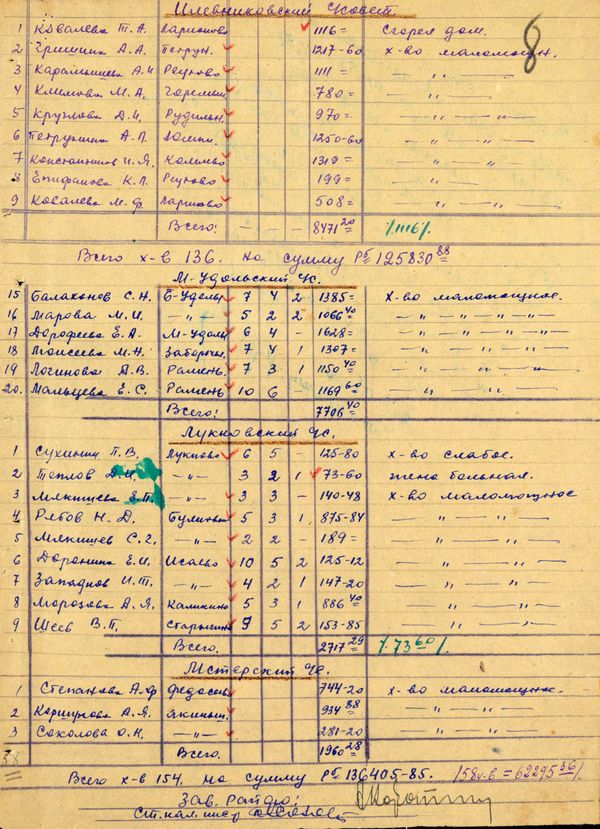 Илевниковский Совет.
8
1 Ковалева Т. А. Ларионово 1116= Сгорел дом.
2 Гришина А. А. Петрун. 1217-60 х-во маломощн.
3 Карамышева А. И Реуново 1111= — „ — „ —
4 Климова М. А. 780= — „ —
5 Круглова Д. И. Рудильн. 970= — „ — „ —
6 Петрунина А. П. 1250-60 — „ — „ —
7 Константинов И. Я. 1319= — „ — „ —
8 Епифанова К. П. Реуново 199= — „ —
9 Ковалева М. Ф. Ларионово 508= — „ — „ —
Всего: — — — 8471 20 /1116/.
Всего х-в 136. на сумму Рб 125830 88
М-Удольский Ус.
15 Балахонов С. Н. Б-Удолы 7 4 2 1385= х-во маломощное.
16 Марова М. И. — „ — 5 2 2 1066 40 — „ — „ — „ —
17 Дорофеева Е. А. М-Удолы 6 4 – 1628= — „ — „ —
18 Моисеева М. Н. Заборочь. 7 4 1 1307= — „ — „ — „ —
19 Логинова А. В. Рамень. 7 3 1 1150 40 — „ — „ —
20. Мальцева Е. С. Рамень 10 6 – 1169 60 — „ — „ —
Всего: 7706 40
Лукновский Ус.
1 Сухинин П. В. Лукново 6 5 – 125-80 х-во слабое.
2 Теплов Д. И. — „ — 3 2 1 73-60 жена больная.
3 Мякишева Е. П. — „ — 3 3 – 140-48 х-во маломощное
4 Рябов Н. Д. Булиново 5 3 1 875-84 — „ — „ —
5 Мякишев С. Г. — „ — 2 2 – 189= — „ — „ —
6 Доронина Е. И. Исаево 10 5 2 125-12 — „ — „ —
7 Западнов И. Т. — „ — 4 2 1 147-20 — „ — „ —
8 Морозова А. Я. Каликино 5 3 1 886 40 — „ — „ —
9 Шеев В. П. Старыгино 9 5 2 153-85 — „ — „ —
Всего. 2717 29 /.73 60/.
Мстерский Ус.
1 Степанова А. Ф Федосеево 744-20 х-во маломощное.
2 Коршунова А. Я. Якиньш. 934 88 — „ — „ —
3 Соколова О. Н. — „ — 281-20 — „ — „ —
58 Всего. 1960 28
Всего х-в 154. на сумму Рб 136405-85. /58х-в = 62295 36/.
Зав. Райфо:
Ст. нал. инсп